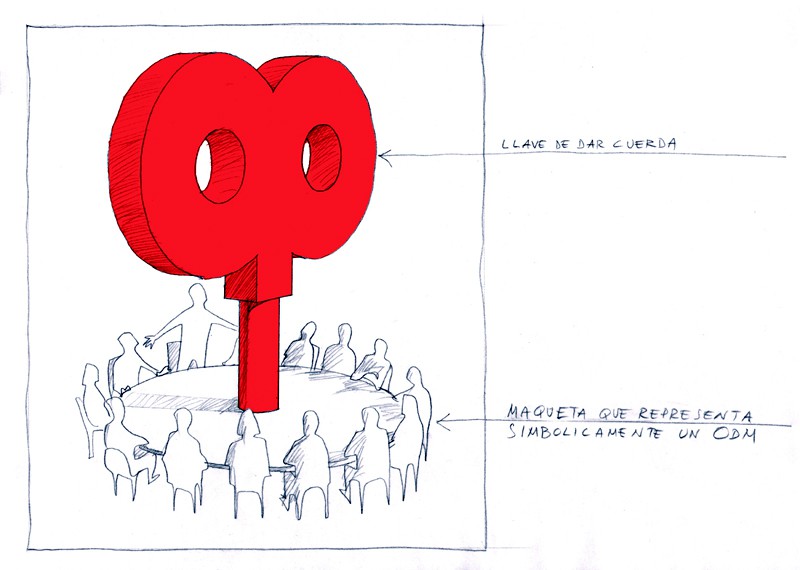 LLAVE DE DAR CUERDA
MAQUETA QUE REPRESENTA
SIMBOLICAMENTE UN ODM